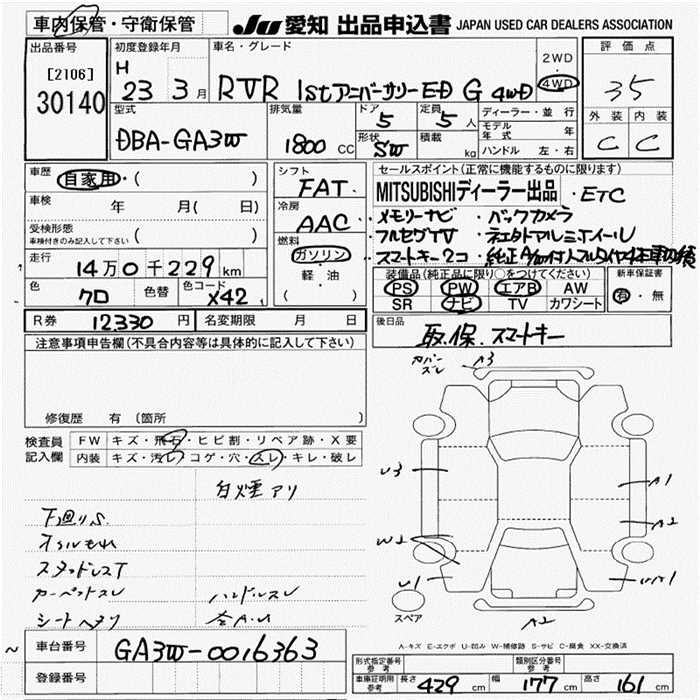 車内保管・守衛保管
JU 愛知 出品申込書 JAPAN USED CAR DEALERS ASSOCIATION
出品番号
[2106]
30140
初度登録年月
H 23 3月
車名・グレード
RVR 1stアニバーサリーED G 4WD
2WD
・
4WD
評価点
3.5
外装 内装
C C
型式
DBA-GA3W
排気量
1800 CC
ドア
5
形状
SW
定員
5人
積載
kg
ディーラー・並行
モデル年式 年
ハンドル 左・右
車歴
自家用・( )
車検 年 月( 日)
受検形態
車検付きのみ記入して下さい ( )
走行
14万0千229km
色
クロ
色替
色コード
X42
シフト
FAT
冷房
AAC
燃料
ガソリン
・
軽・油
( )
セールスポイント(正常に機能するものに限ります)
MITSUBISHIディーラー出品 ・ETC
・メモリーナビ ・バックカメラ
・フルセグTV
・スマートキー2コ
装備品(純正品に限り○をつけてください)
PS PW エアB AW
SR ナビ TV カワシート
新車保証書
有・無
R券 12330円
名変期限 月 日
後日品
取.保.スマートキー
注意事項申告欄(不具合内容等は具体的に記入して下さい)
修復歴 有 (箇所 )
検査員
記入欄
FW キズ・飛石・ヒビ割・リペア跡・X要
内装 キズ・汚レ・コゲ・穴・スレ・キレ・破レ
白煙アリ
下廻りS.
オイルもれ
スタッドレスT
カーペットスレ ハンドルスレ
シートヘタリ
カバースレ
A3
U3
A1
A2
W2
U1
A2
スペア
A-キズ E-エクボ U-凹み W-補修跡 S-サビ C-腐食 XX-交換済
車台番号
GA3W-0016363
登録番号
形式指定番号
参考
類別区分番号
参考
車庫証明用
参考
長さ 429 cm 幅 177 cm 高さ 161 cm